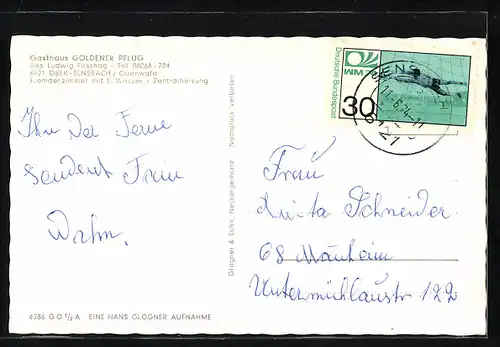 Gasthaus GOLDENER PFLUG
Bes. Ludwig Foschag - Tel. 06068-784
6121 OBER-SENSBACH / Odenwald
Fremdenzimmer mit fl. Wasser - Zentralheizung
Ihn der Ferne
sendent Frau
Dahm.
6286 GO 1/2 A EINE HANS GLOGNER AUFNAHME
Glogner & Sohn, Neckargemünd Nachdruck verboten
Deutsche Bundespost
WM 74
30
14.-6.74-11
6121
Frau
Schneider
68 Mänheim
Untermühlaustr 122